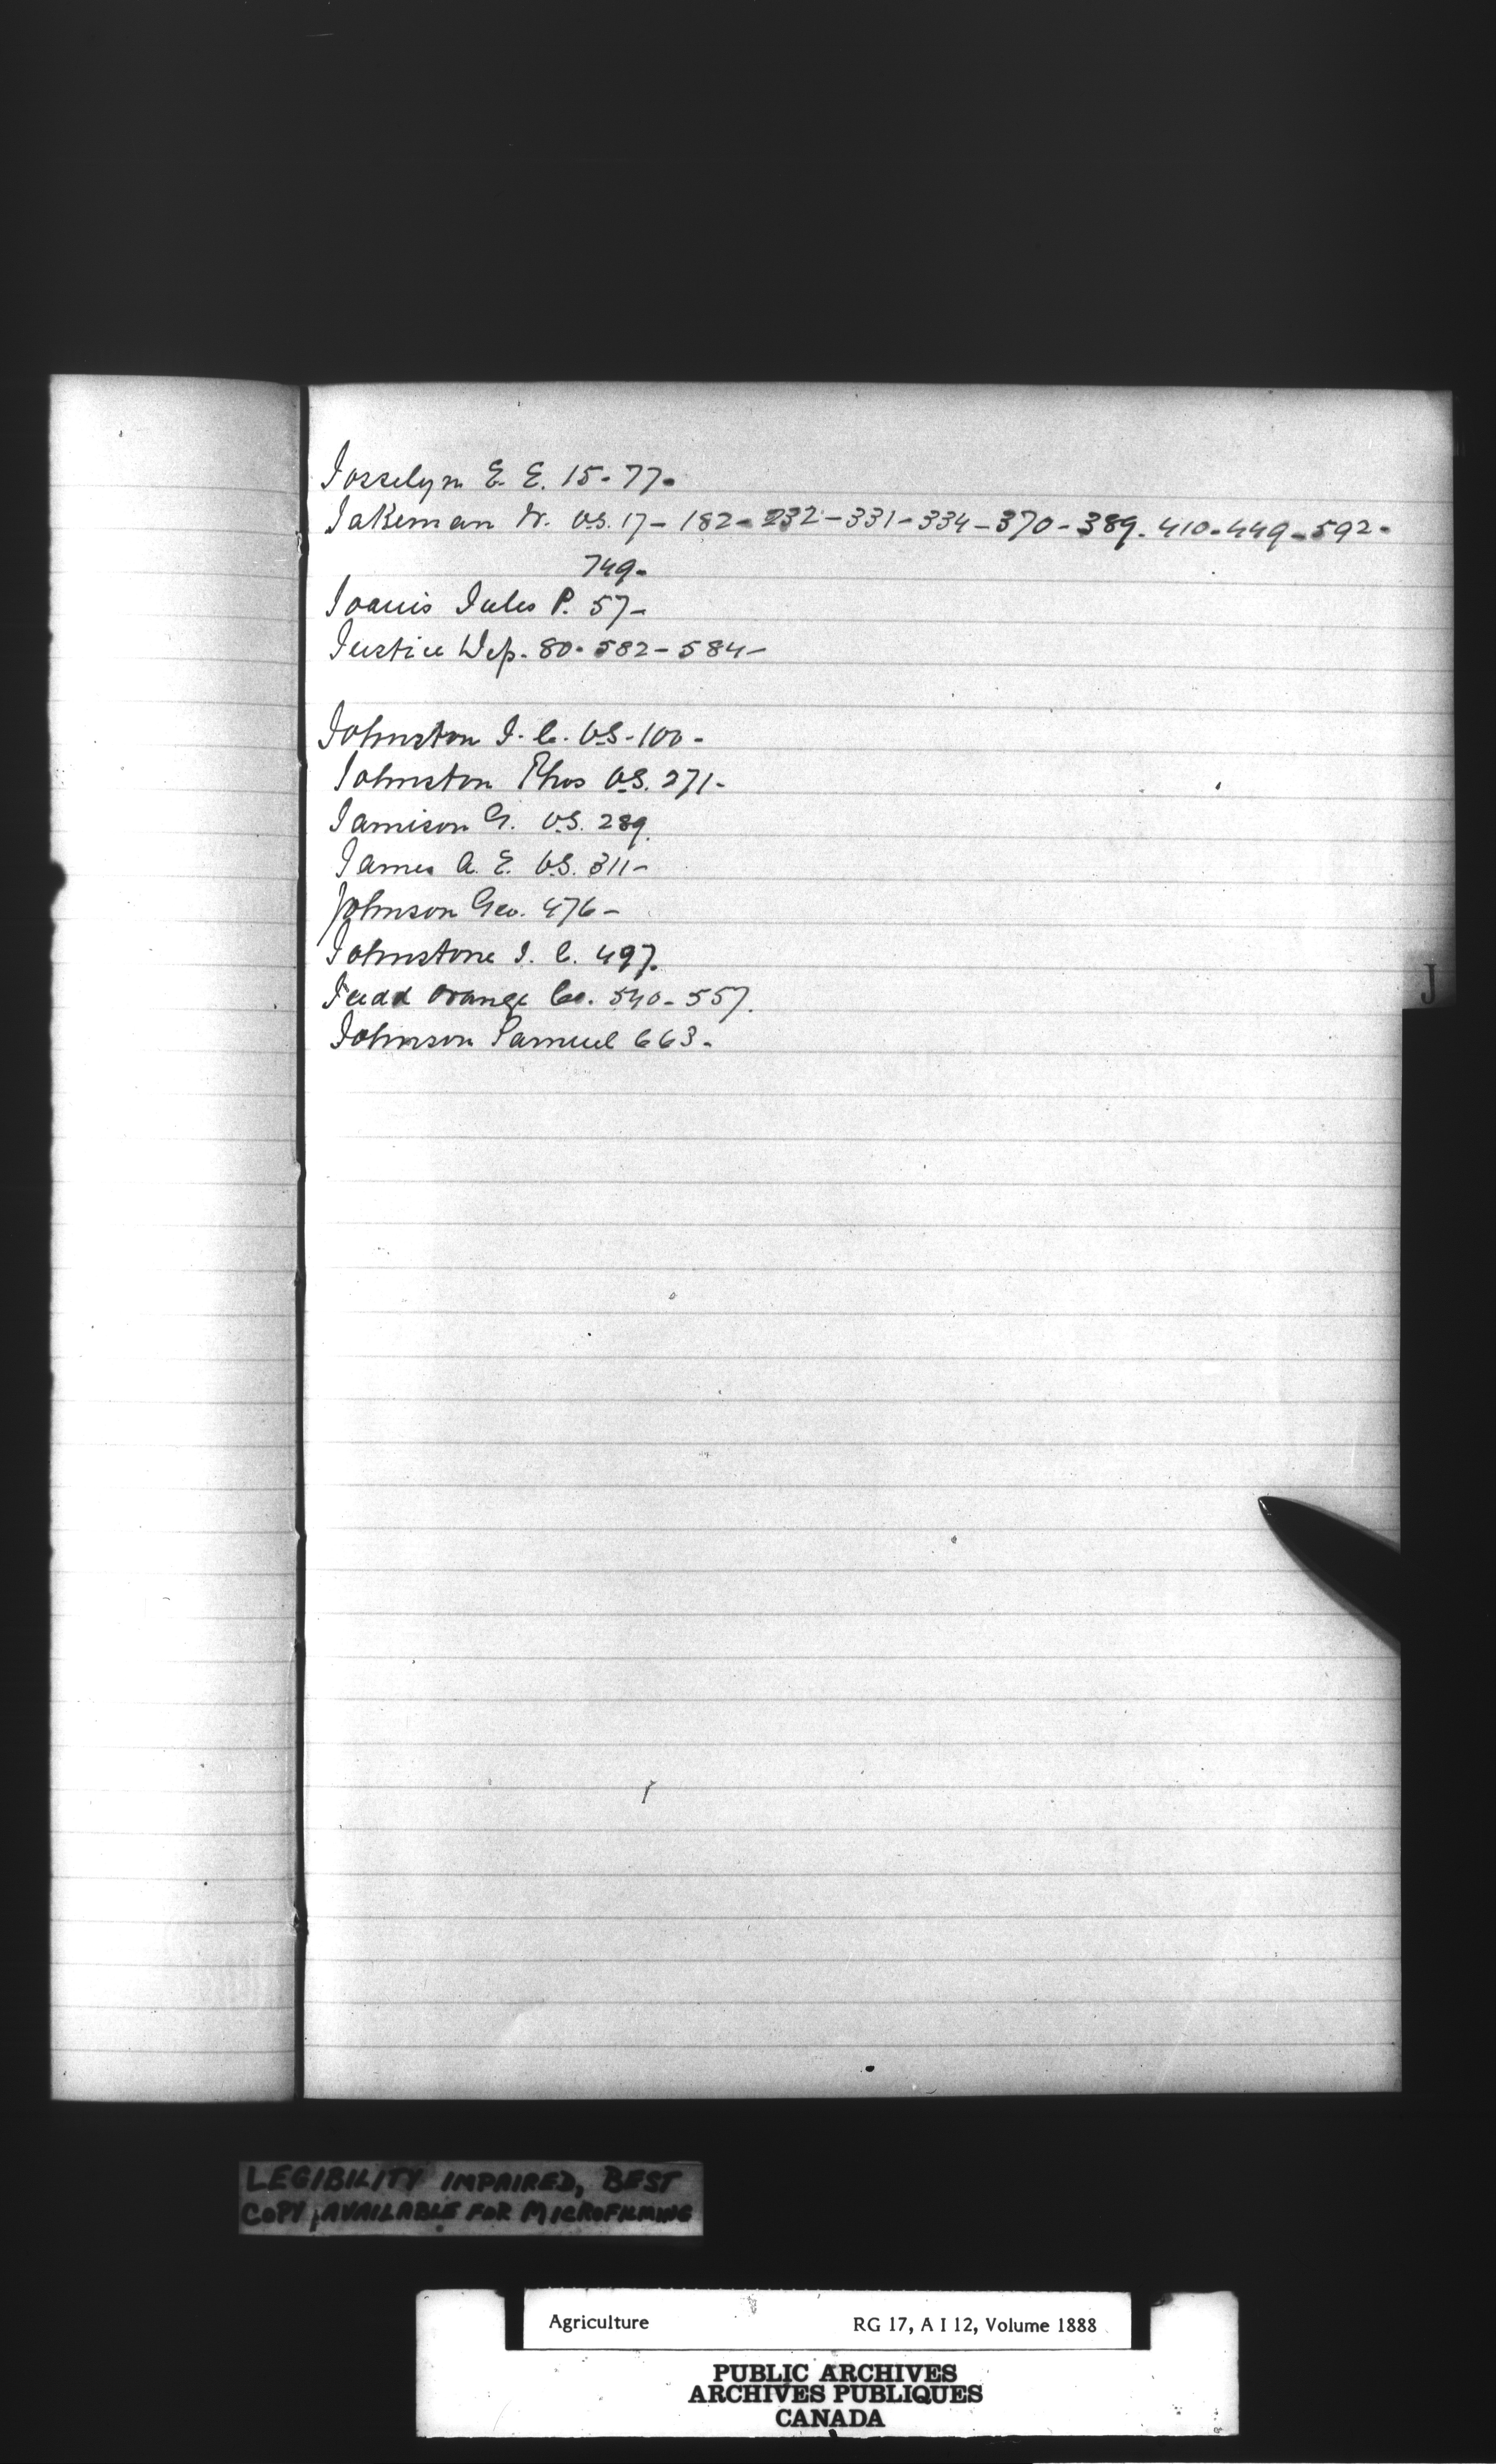 Josselyn E. E. 15-77-
Jakeman W. V.S. 17-182-232-331-334-370-389-410-449-592-
749-
Joanis Jules P. 57-
Justice Dep. 80-582-584-
Johnston J. C. V.S-100-
Johnston Thos V.S. 271-
Jamison G. V.S. 289.
James A. E. V.S. 311-
Johnson Geo. 476-
Johnstone J. C. 497.
Judd Orange Co. 540-557.
Johnson Samuel 663-
J
LEGIBILITY IMPAIRED, BEST
COPY AVAILABLE FOR MICROFILMING
Agriculture RG 17, A I 12, Volume 1888
PUBLIC ARCHIVES
ARCHIVES PUBLIQUES
CANADA